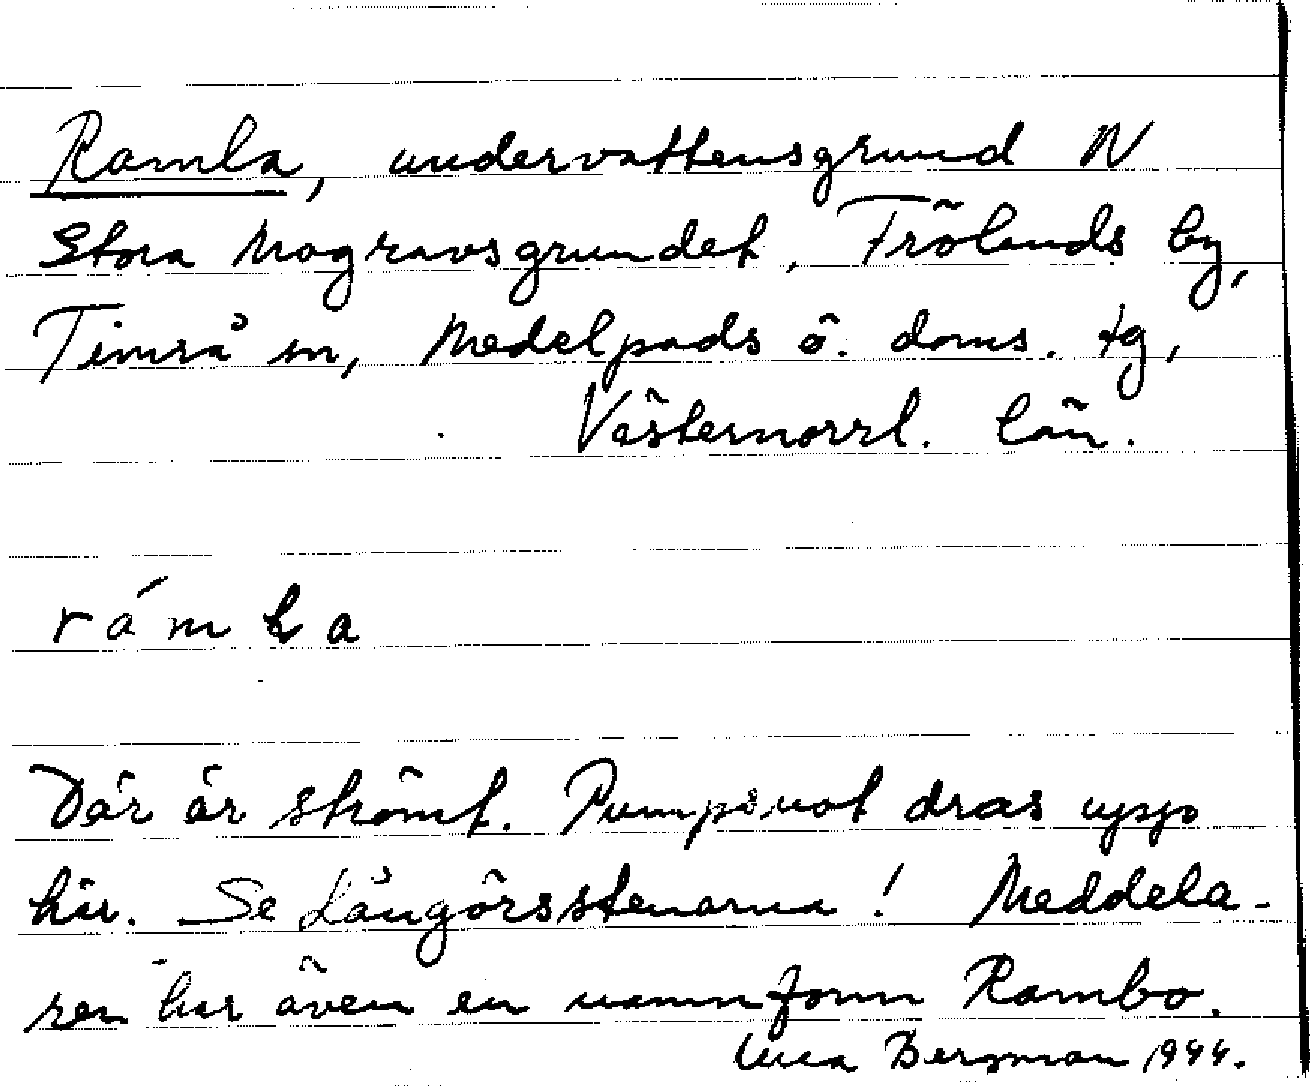 Ramla, undervattensgrund N
Stora Mogravsgrundet, Frölands by,
Timrå sn, Medelpads ö. doms. tg,
Västernorrl. län.
rámla
Där är strömt. Pumpsnot dras upp
här. Se Långörsstenarna! Meddela-
ren har även en namnform Rambo.
Bergman 1944.